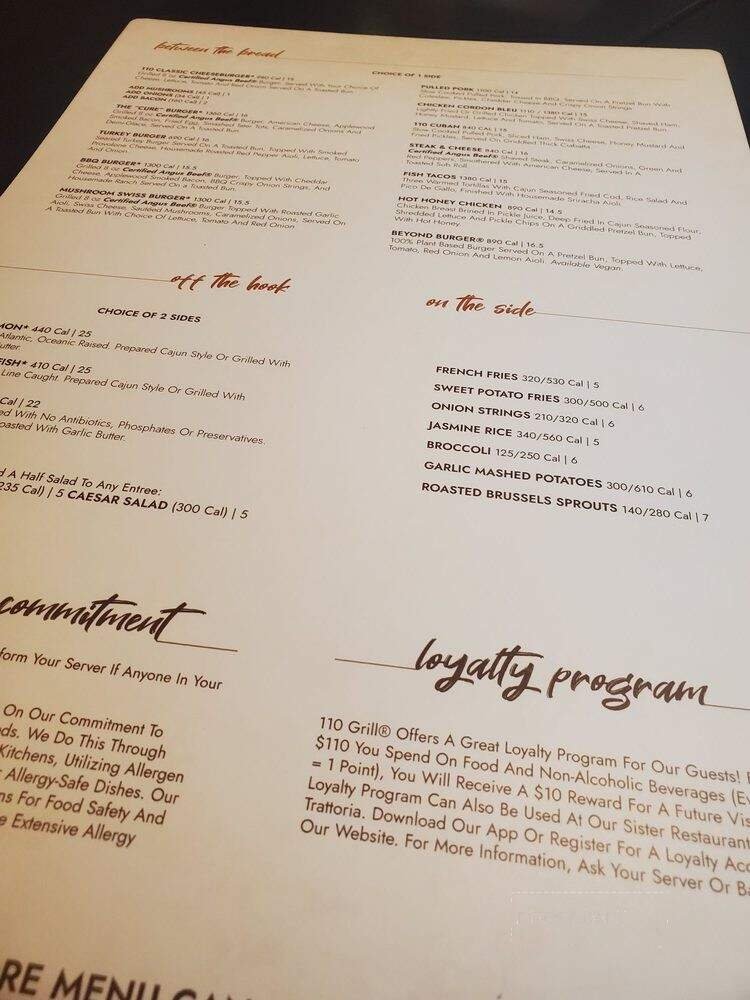 between the bread
CHOICE OF 1 SIDE
110 CLASSIC CHEESEBURGER* 960 Cal | 15
Grilled 8 oz Certified Angus Beef® Burger, Served With Your Choice Of
Cheese, Lettuce, Tomato And Red Onion Served On A Toasted Bun.
ADD MUSHROOMS (45 Cal) | 1
ADD ONIONS (34 Cal) | 1
ADD BACON (160 Cal) | 2
THE "CURE" BURGER* 1350 Cal | 16
Grilled 8 oz Certified Angus Beef® Burger, American Cheese, Applewood
Smoked Bacon, Fried Egg, Smashed Tater Tots, Caramelized Onions And
Demi-Glace, Served On A Toasted Bun.
TURKEY BURGER 690 Cal | 16
Seared Turkey Burger Served On A Toasted Bun, Topped With Smoked
Provolone Cheese, Housemade Roasted Red Pepper Aioli, Lettuce, Tomato
And Onion.
BBQ BURGER* 1300 Cal | 15.5
Grilled 8 oz Certified Angus Beef® Burger, Topped With Cheddar
Cheese, Applewood Smoked Bacon, BBQ Crispy Onion Strings, And
Housemade Ranch Served On a Toasted Bun.
MUSHROOM SWISS BURGER* 1300 Cal | 15.5
Grilled 8 oz Certified Angus Beef® Burger Topped With Roasted Garlic
Aioli, Swiss Cheese, Sautéed Mushrooms, Caramelized Onions, Served On
A Toasted Bun With Choice Of Lettuce, Tomato And Red Onion
PULLED PORK 1100 Cal | 14
Slow Cooked Pulled Pork, Tossed In BBQ, Served On A Pretzel Bun With
Coleslaw, Pickles, Cheddar Cheese And Crispy Onion Strings.
CHICKEN CORDON BLEU 1110 / 1380 Cal | 15
Lightly Fried Or Grilled Chicken Topped With Swiss Cheese, Shaved Ham,
Honey Mustard, Lettuce And Tomato, Served On A Toasted Pretzel Bun.
110 CUBAN 840 CAL | 15
Slow Cooked Pulled Pork, Sliced Ham, Swiss Cheese, Honey Mustard And
Fried Pickles, Served On Griddled Thick Ciabatta.
STEAK & CHEESE 840 Cal | 16
Certified Angus Beef® Shaved Steak, Caramelized Onions, Green And
Red Peppers, Smothered With American Cheese, Served In A
Toasted Sub Roll.
FISH TACOS 1380 Cal | 15
Three Warmed Tortillas With Cajun Seasoned Fried Cod, Rice Salad And
Pico De Gallo, Finished With Housemade Sriracha Aioli.
HOT HONEY CHICKEN 890 Cal | 14.5
Chicken Breast Brined In Pickle Juice, Deep Fried In Cajun Seasoned Flour,
Shredded Lettuce And Pickle Chips On A Griddled Pretzel Bun, Topped
With Hot Honey.
BEYOND BURGER® 890 Cal | 16.5
100% Plant Based Burger Served On A Pretzel Bun, Topped With Lettuce,
Tomato, Red Onion And Lemon Aioli. Available Vegan.
off the hook
CHOICE OF 2 SIDES
MON* 440 Cal | 25
Atlantic, Oceanic Raised. Prepared Cajun Style Or Grilled With
utter.
FISH* 410 Cal | 25
Line Caught. Prepared Cajun Style Or Grilled With
Cal | 22
ed With No Antibiotics, Phosphates Or Preservatives.
oasted With Garlic Butter.
d A Half Salad To Any Entree:
235 Cal) | 5 CAESAR SALAD (300 Cal) | 5
on the side
FRENCH FRIES 320/530 Cal | 5
SWEET POTATO FRIES 300/500 Cal | 6
ONION STRINGS 210/320 Cal | 6
JASMINE RICE 340/560 Cal | 5
BROCCOLI 125/250 Cal | 6
GARLIC MASHED POTATOES 300/610 Cal | 6
ROASTED BRUSSELS SPROUTS 140/280 Cal | 7
commitment
form Your Server If Anyone In Your
On Our Commitment To
ds. We Do This Through
Kitchens, Utilizing Allergen
r Allergy-Safe Dishes. Our
ns For Food Safety And
e Extensive Allergy
loyalty program
110 Grill® Offers A Great Loyalty Program For Our Guests! F
$110 You Spend On Food And Non-Alcoholic Beverages (Ev
= 1 Point), You Will Receive A $10 Reward For A Future Vis
Loyalty Program Can Also Be Used At Our Sister Restaurant
Trattoria. Download Our App Or Register For A Loyalty Acc
Our Website. For More Information, Ask Your Server Or Ba
RE MENU CAN